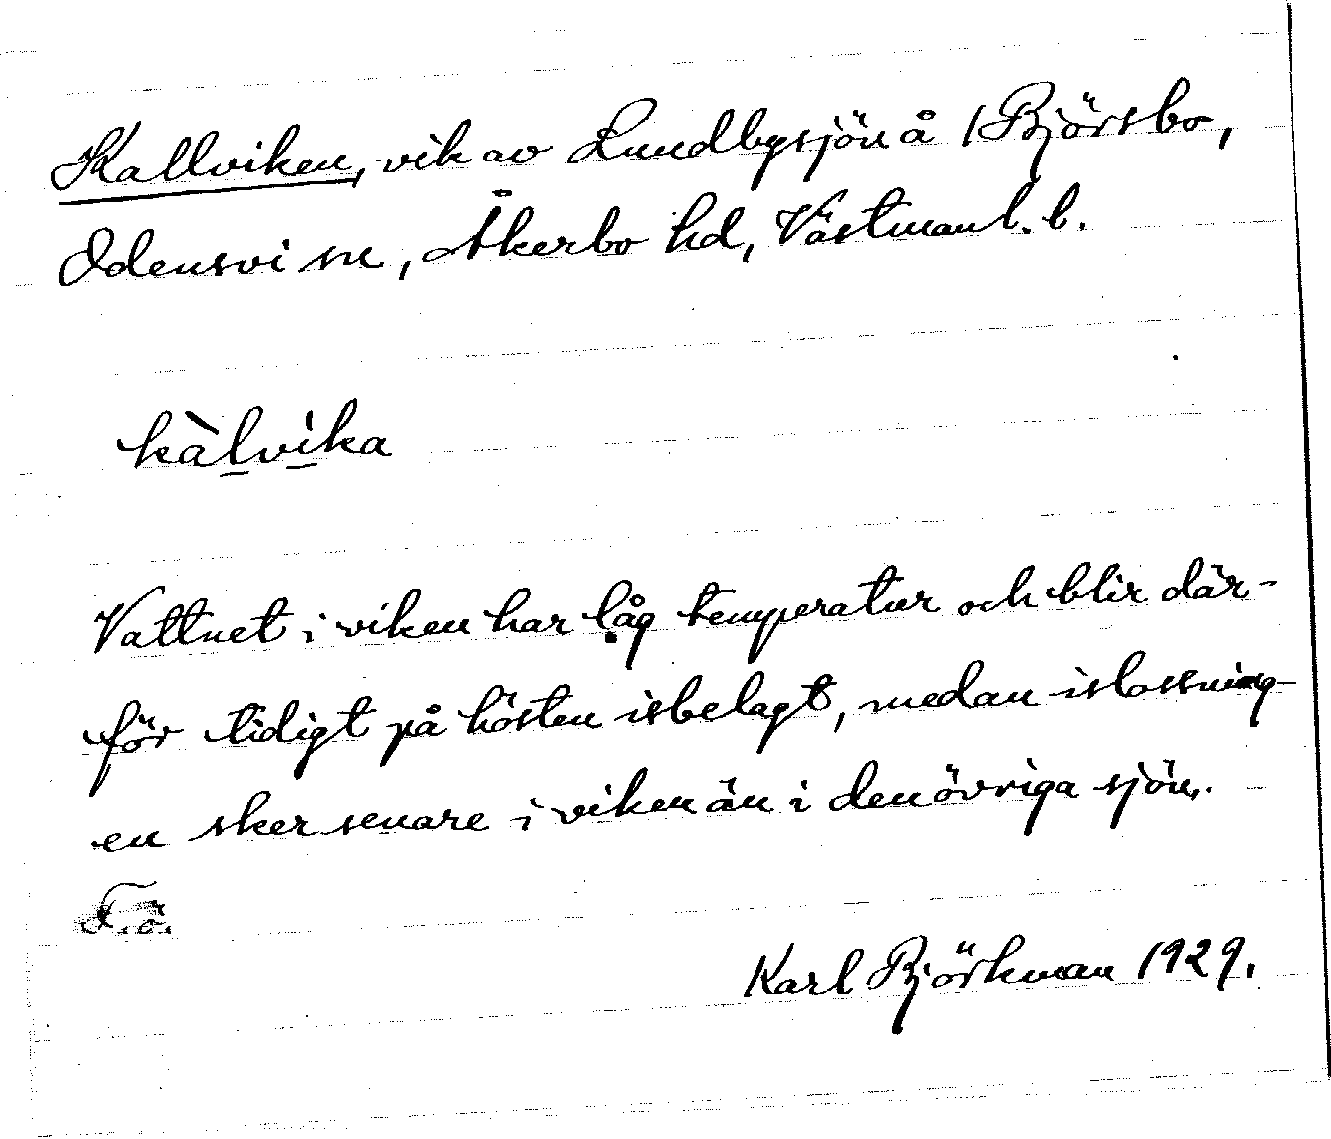 Kallviken, vik av Lundbysjön å 1 Björsbo,
Odensvi sn, Åkerbo hd, Västmanl. l.
kàlvika
Vattnet i viken har låg temperatur och blir där-
för tidigt på hösten isbelagt, medan islossning-
en sker senare i viken än i den övriga sjön.
F.ö.
Karl Björkman 1929.